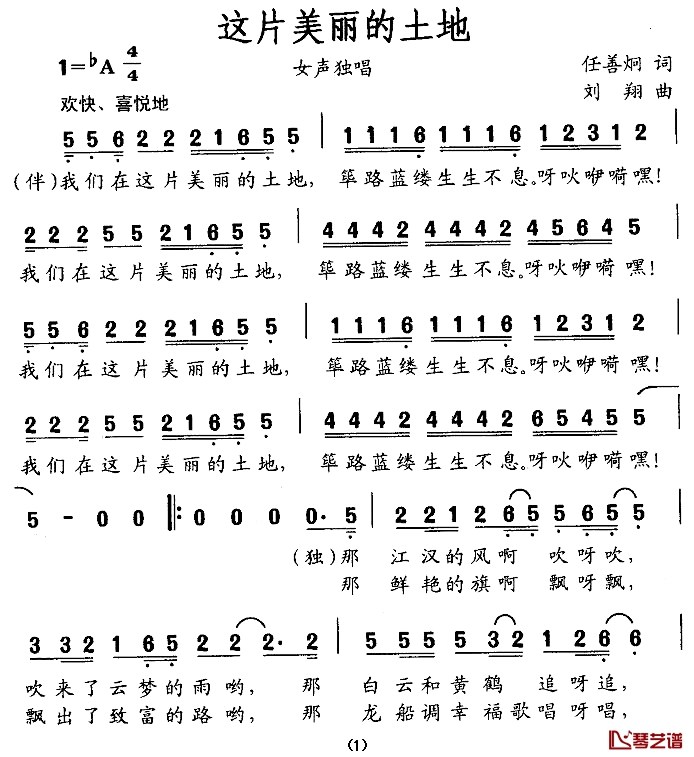 这片美丽的土地
1=♭A 4/4
女声独唱
任善炯 词
刘 翔 曲
欢快、喜悦地
5 5 6 2 2 2 1 6 5 5 | 1 1 1 6 1 1 1 6 1 2 3 1 2 |
(伴)我们在这片美丽的土地, 筚路蓝缕生生不息。呀吙咿嗬嘿!
2 2 2 5 5 2 1 6 5 5 | 4 4 4 2 4 4 4 2 4 5 6 4 5 |
我们在这片美丽的土地, 筚路蓝缕生生不息。呀吙咿嗬嘿!
5 5 6 2 2 2 1 6 5 5 | 1 1 1 6 1 1 1 6 1 2 3 1 2 |
我们在这片美丽的土地, 筚路蓝缕生生不息。呀吙咿嗬嘿!
2 2 2 5 5 2 1 6 5 5 | 4 4 4 2 4 4 4 2 6 5 4 5 5 |
我们在这片美丽的土地, 筚路蓝缕生生不息。呀吙咿嗬嘿!
5 - 0 0 ‖: 0 0 0 0· 5 | 2 2 1 2 6 5 5 6 5 5 |
(独)那 江汉的风啊 吹呀吹,
那 鲜艳的旗啊 飘呀飘,
3 3 2 1 6 5 2 2 2· 2 | 5 5 5 5 3 2 1 2 6 6 |
吹来了云梦的雨哟, 那 白云和黄鹤 追呀追,
飘出了致富的路哟, 那 龙船调幸福歌唱呀唱,
(1)
琴艺谱